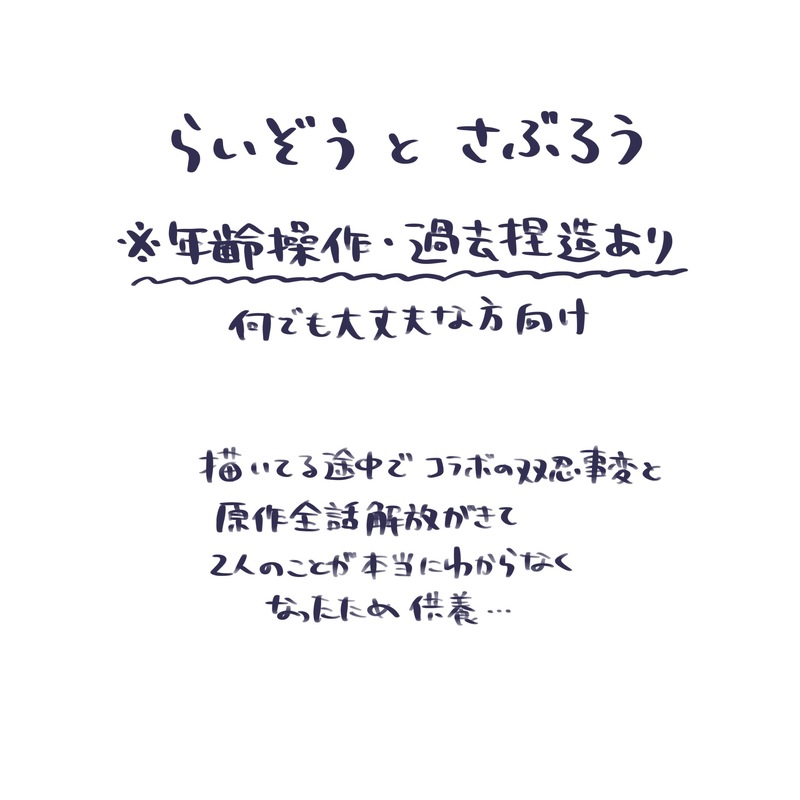 らいぞう と さぶろう
※年齢操作・過去捏造あり
何でも大丈夫な方向け
描いてる途中で コラボの双忍事変と
原作全話解放がきて
2人のことが本当にわからなく
なったため 供養…